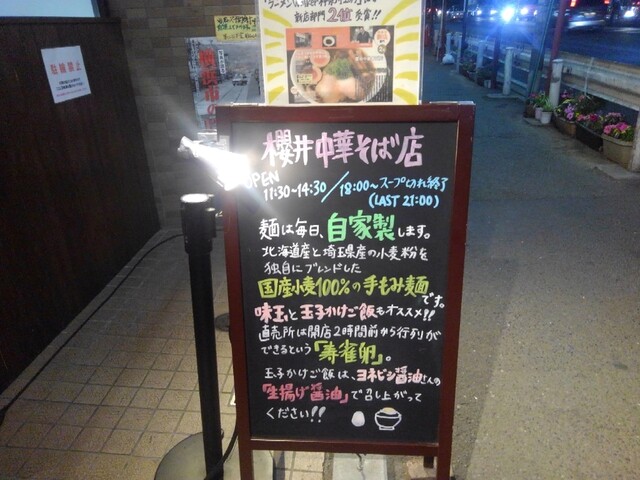 新店部門24位受賞!!
駐輪禁止
櫻井中華そば店
OPEN
11:30~14:30/18:00~スープ切れ終了
(LAST 21:00)
麺は毎日、自家製します。
北海道産と埼玉県産の小麦粉を
独自にブレンドした
国産小麦100%の手もみ麺
です。
味玉と玉子かけご飯もオススメ!!
直売所は開店2時間前から行列が
できるという「寿雀卵」。
玉子かけご飯は、ヨネビシ醤油さんの
「生揚げ醤油」で召し上がって
ください!!